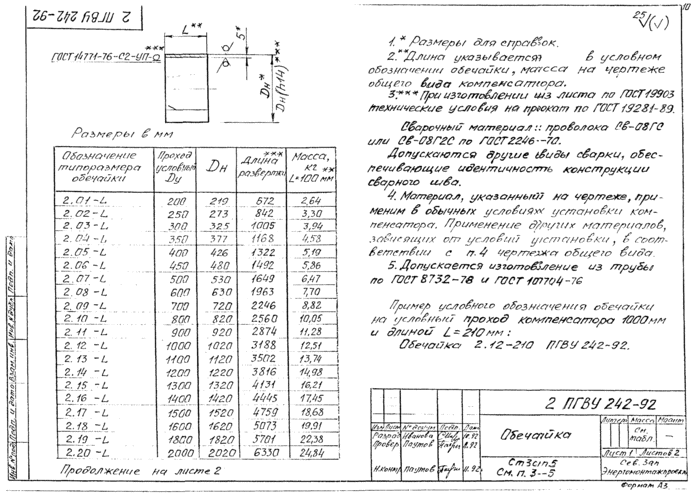 2 ПГВУ 242-92
L**
5*
ГОСТ 14771-76-С2-УП-
Dн*
Dн(h14)***
Размеры в мм
Обозначение типоразмера обечайки | Проход условный Dу | Dн | Длина*** развертки | Масса, кг** L=100 мм
2.01-L 200 219 672 2,64
2.02-L 250 273 842 3,30
2.03-L 300 325 1005 3,94
2.04-L 350 377 1168 4,58
2.05-L 400 426 1322 5,19
2.06-L 450 480 1492 5,86
2.07-L 500 530 1649 6,47
2.08-L 600 630 1963 7,70
2.09-L 700 720 2246 8,82
2.10-L 800 820 2560 10,05
2.11-L 900 920 2874 11,28
2.12-L 1000 1020 3188 12,51
2.13-L 1100 1120 3502 13,74
2.14-L 1200 1220 3816 14,98
2.15-L 1300 1320 4131 16,21
2.16-L 1400 1420 4445 17,45
2.17-L 1500 1520 4759 18,68
2.18-L 1600 1620 5073 19,91
2.19-L 1800 1820 5701 22,38
2.20-L 2000 2020 6330 24,84
Продолжение на листе 2
10
25/(√)
1.* Размеры для справок.
2.** Длина указывается в условном
обозначении обечайки, масса на чертеже
общего вида компенсатора.
3.*** При изготовлении из листа по ГОСТ 19903
технические условия на прокат по ГОСТ 19281-89.
Сварочный материал: проволока СВ-08ГС
или СВ-08Г2С по ГОСТ 2246-70.
Допускаются другие виды сварки, обес-
печивающие идентичность конструкции
сварного шва.
4. Материал, указанный на чертеже, при-
меним в обычных условиях установки ком-
пенсатора. Применение других материалов,
зависящих от условий установки, в соот-
ветствии с п.4 чертежа общего вида.
5. Допускается изготовление из трубы
по ГОСТ 8732-78 и ГОСТ 10704-76
Пример условного обозначения обечайки
на условный проход компенсатора 1000 мм
и длиной L=210 мм:
Обечайка 2.12-210 ПГВУ 242-92.
2 ПГВУ 242-92
Обечайка
Литера Масса Масшт
см. табл. -
Лист 1 Листов 2
Изм Лист № докум. Подп. Дата
Разраб Иванова
Провер Паутов
Н.контр Паутов
Ст3сп5
См. п. 3-5
Сев. Зап
Энергомонтажпроект
Формат А3